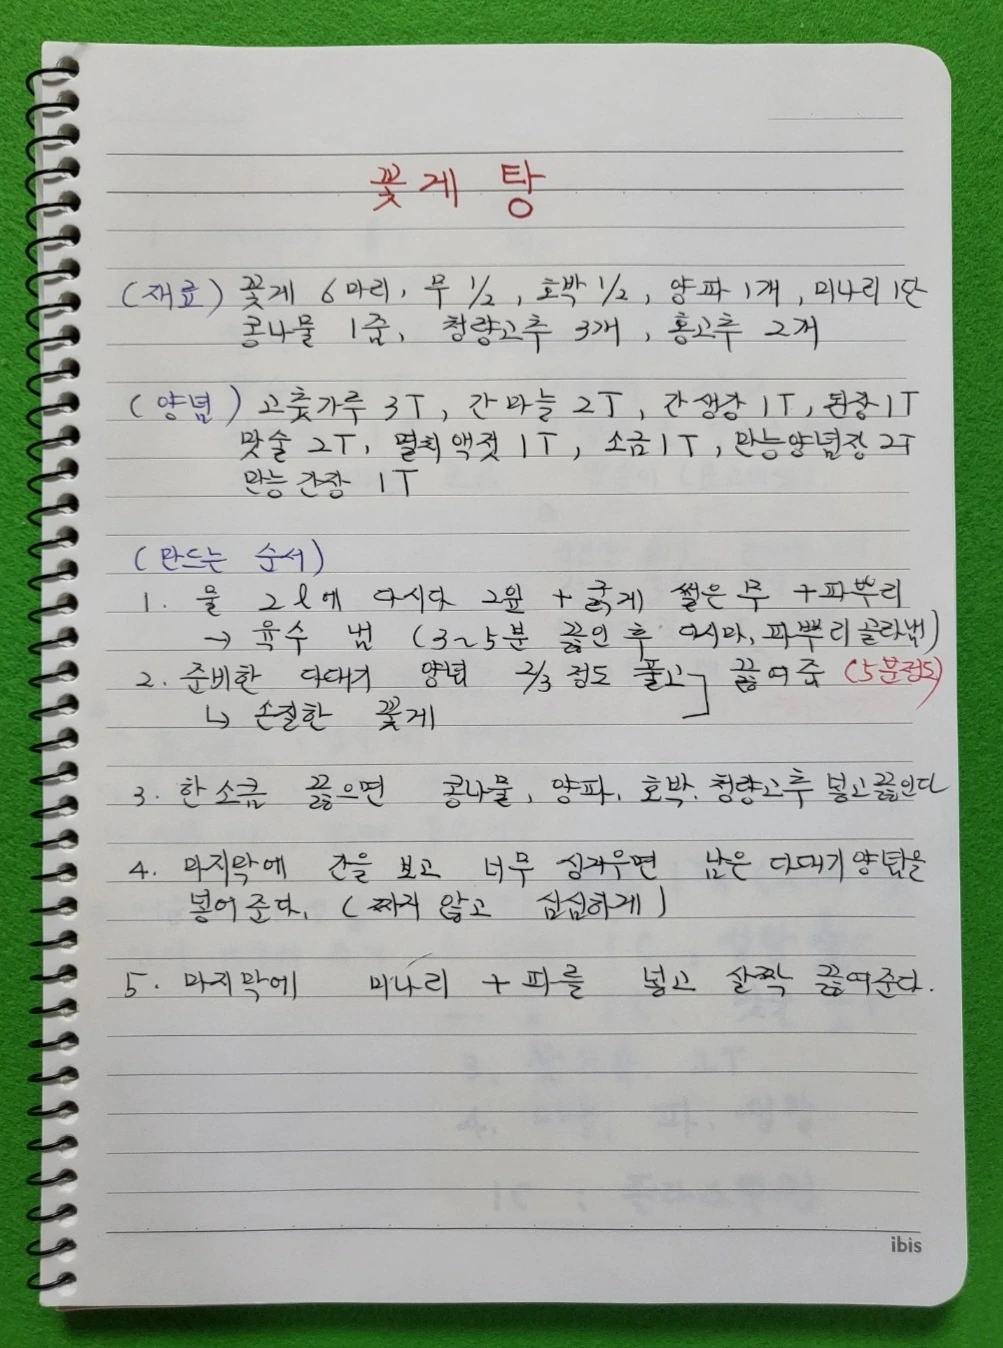 꽃게 탕
(재료) 꽃게 6마리, 무 1/2, 호박 1/2, 양파 1개, 미나리 1단
콩나물 1줌, 청량고추 3개, 홍고추 2개
(양념) 고춧가루 3T, 간마늘 2T, 간생강 1T, 된장 1T
맛술 2T, 멸치액젓 1T, 소금 1T, 만능양념장 2T
만능간장 1T
(만드는 순서)
1. 물 2ℓ에 다시다 2알 + 굵게 썰은 무 + 파뿌리
→ 육수 냄 (3~5분 끓인 후 다시마, 파뿌리 골라냄)
2. 준비한 다대기 양념 2/3 정도 풀고 끓여줌 (5분정도)
↳ 손질한 꽃게
3. 한소금 끓으면 콩나물, 양파, 호박, 청량고추 넣고 끓인다
4. 마지막에 간을 보고 너무 싱거우면 남은 다대기양념을
넣어준다, (짜지 않고 심심하게)
5. 마지막에 미나리 + 파를 넣고 살짝 끓여준다.
ibis